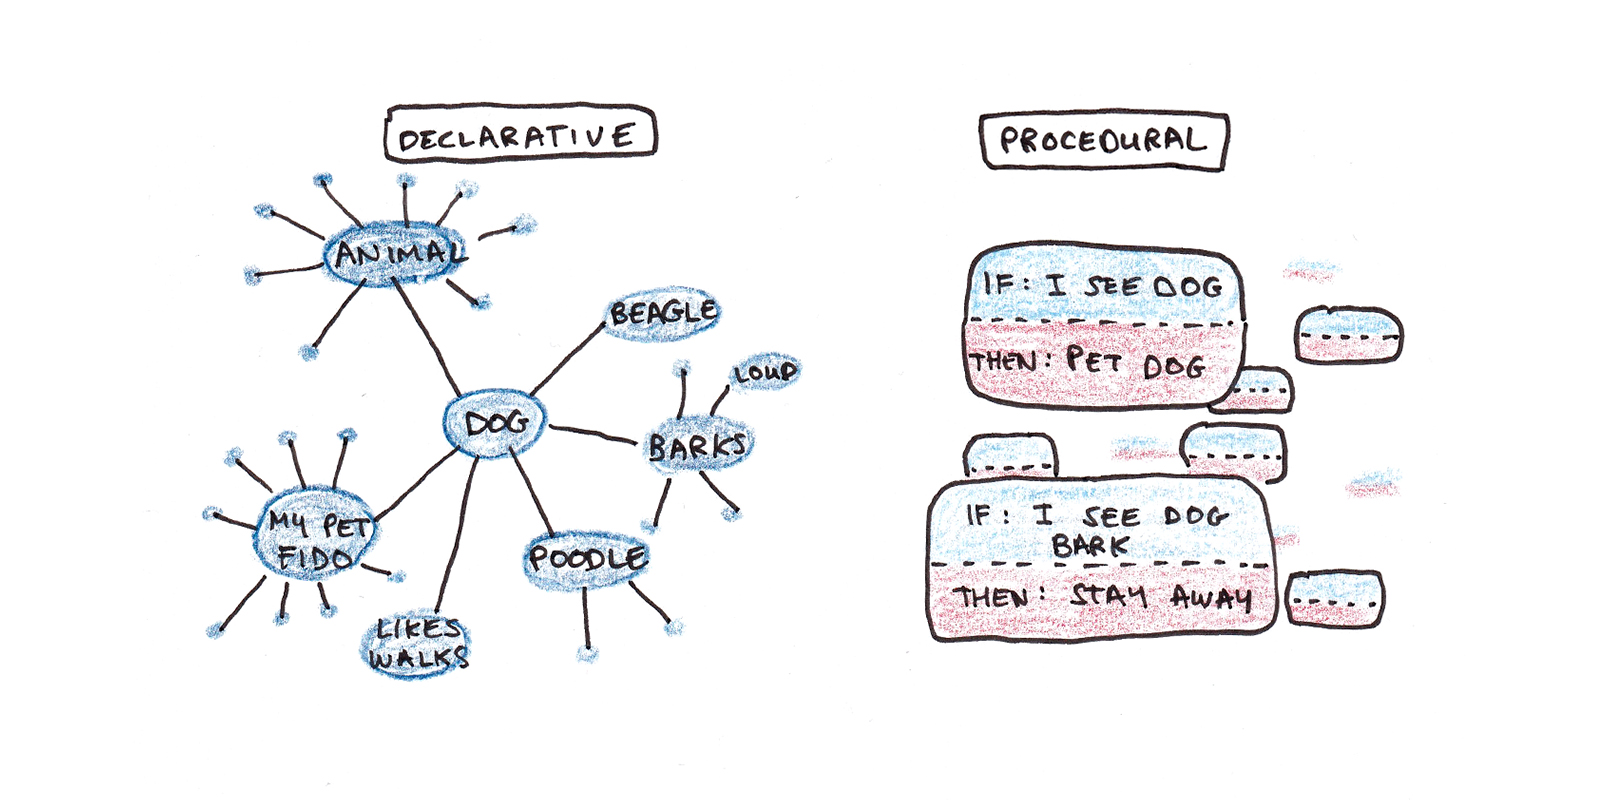 DECLARATIVE
ANIMAL
BEAGLE
LOUD
DOG
BARKS
MY PET
FIDO
POODLE
LIKES
WALKS
PROCEDURAL
IF: I SEE DOG
THEN: PET DOG
IF: I SEE DOG
BARK
THEN: STAY AWAY